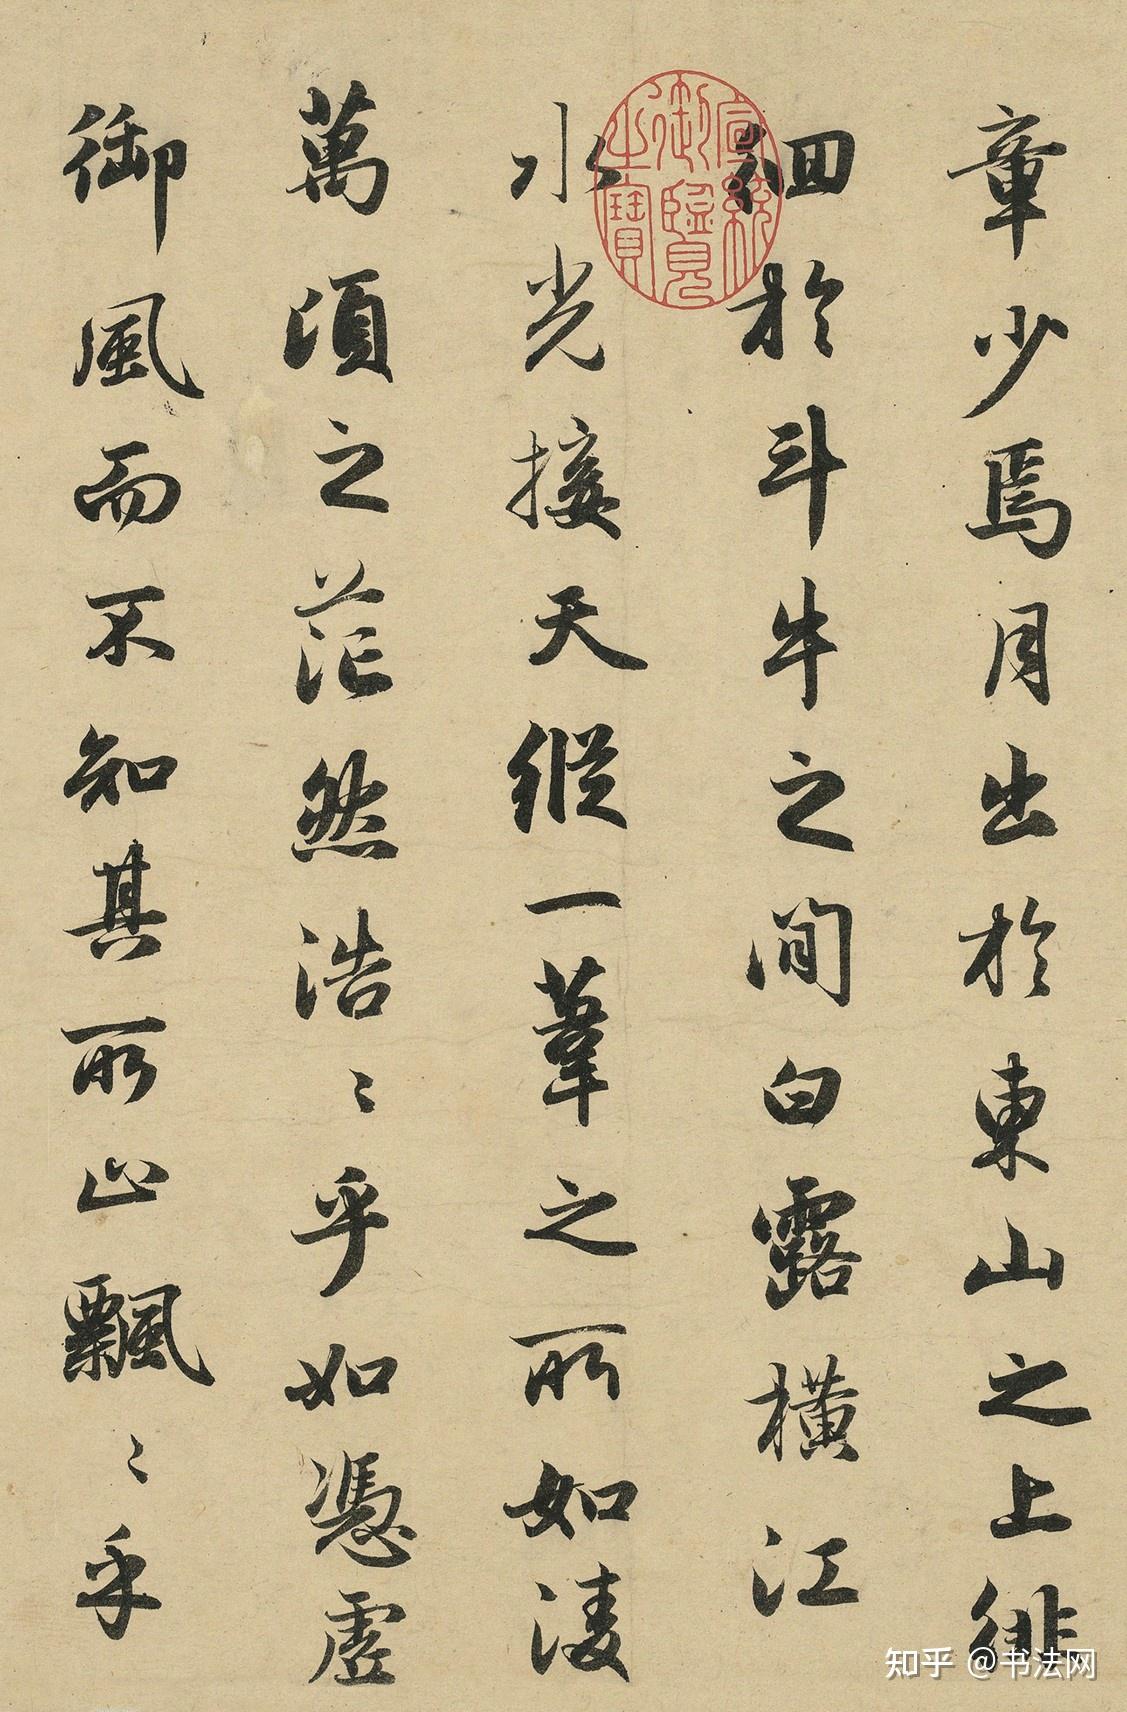 章少焉月出於東山之上徘
徊於斗牛之間白露橫江
水光接天縱一葦之所如淩
萬頃之茫然浩〻乎如憑虛
御風而不知其所止飄〻乎
宣統御覽之寶
知乎 @书法网